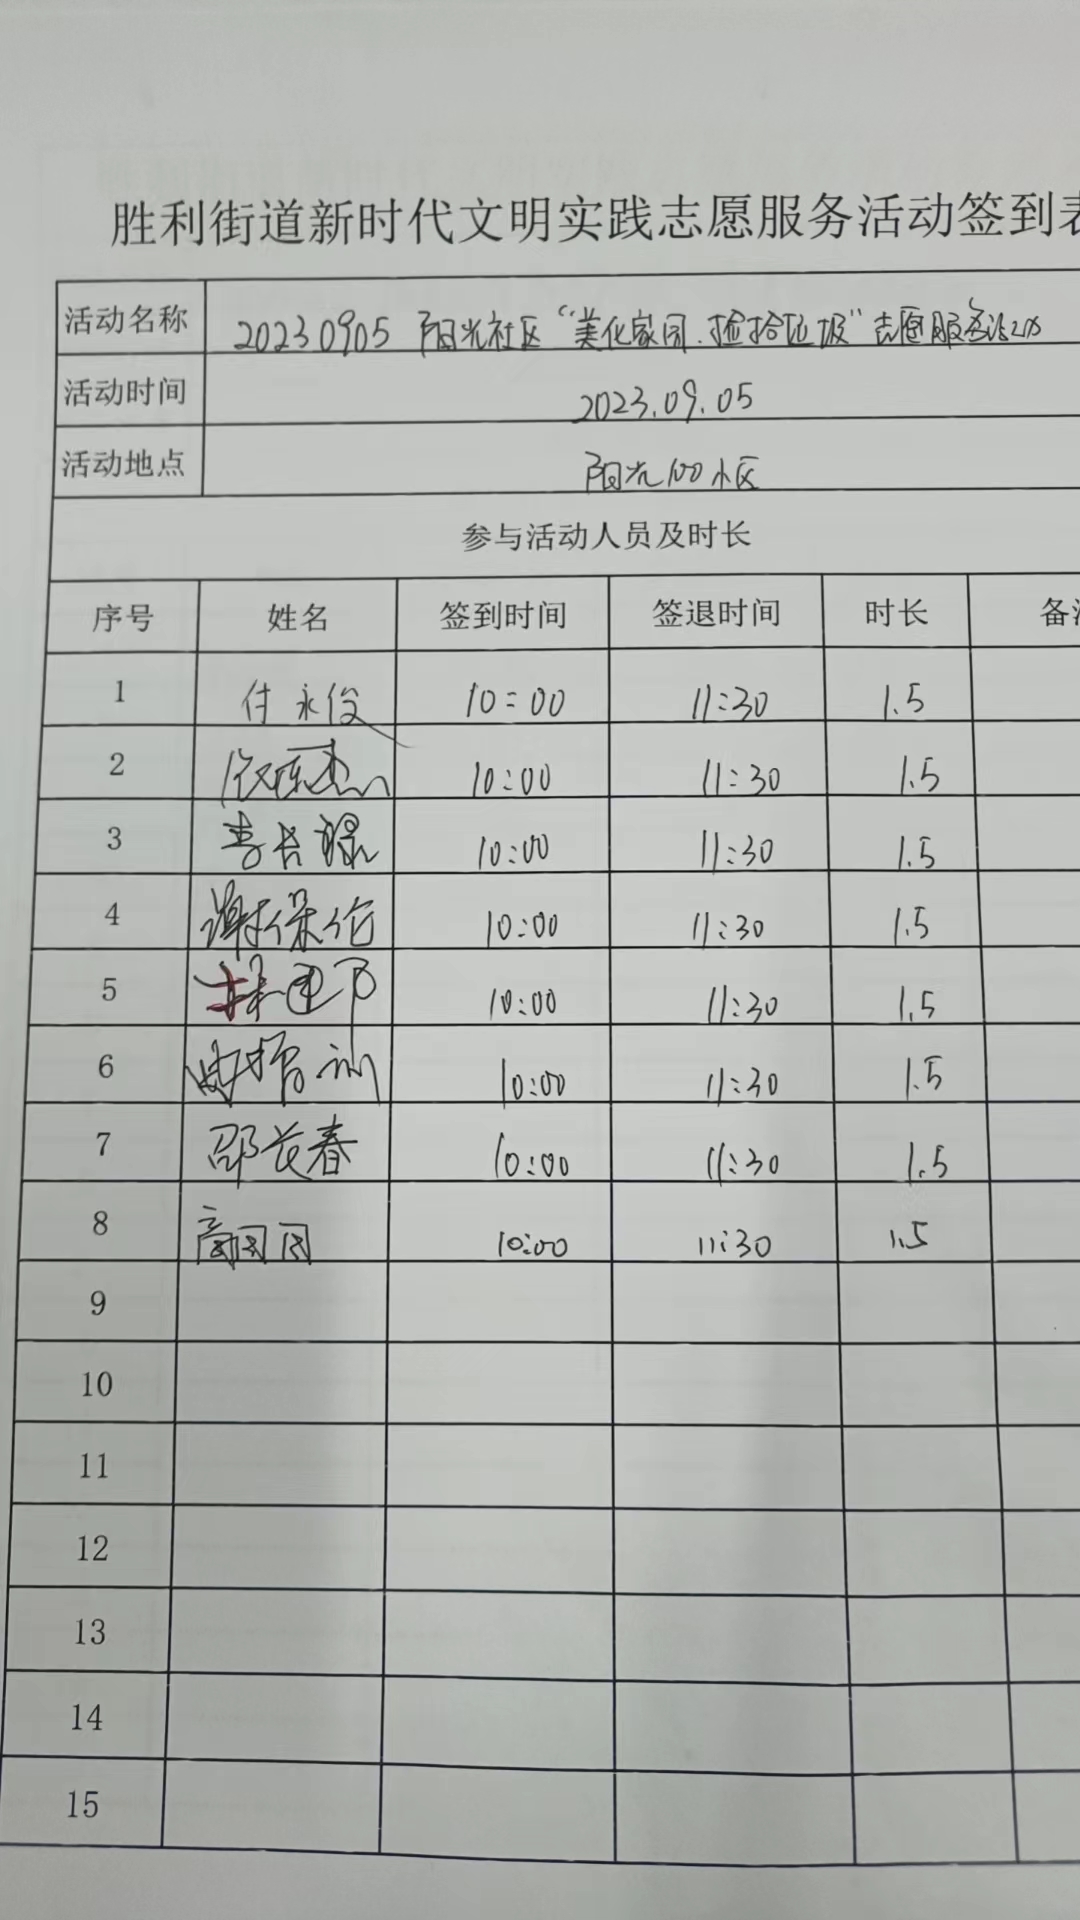 胜利街道新时代文明实践志愿服务活动签到表
活动名称 20230905 阳光社区“美化家园.捡拾垃圾”志愿服务活动
活动时间 2023.09.05
活动地点 阳光100小区
参与活动人员及时长
序号 姓名 签到时间 签退时间 时长 备注
1 付永俊 10:00 11:30 1.5
2 10:00 11:30 1.5
3 李长禄 10:00 11:30 1.5
4 谢保伦 10:00 11:30 1.5
5 10:00 11:30 1.5
6 10:00 11:30 1.5
7 邵长春 10:00 11:30 1.5
8 商团团 10:00 11:30 1.5
9
10
11
12
13
14
15